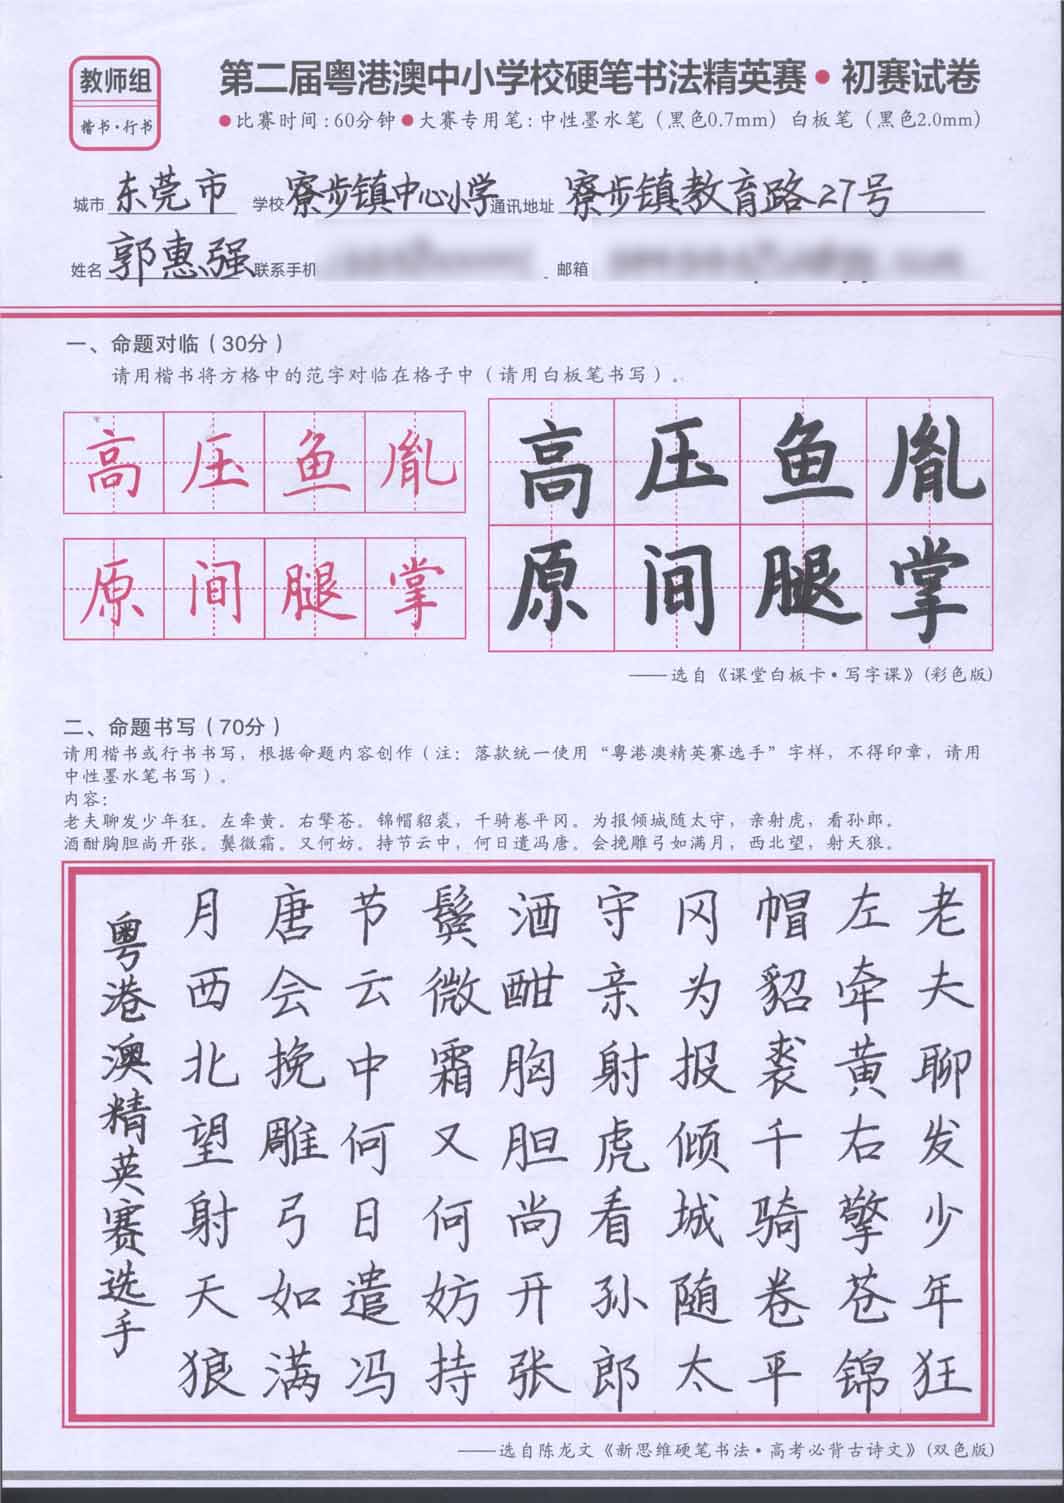 教师组
楷书·行书
第二届粤港澳中小学校硬笔书法精英赛·初赛试卷
●比赛时间:60分钟●大赛专用笔:中性墨水笔（黑色0.7mm）白板笔（黑色2.0mm）
城市 东莞市 学校 寮步镇中心小学 通讯地址 寮步镇教育路27号
姓名 郭惠强 联系手机 邮箱
一、命题对临（30分）
请用楷书将方格中的范字对临在格子中（请用白板笔书写）。
高压鱼胤
原间腿掌
高压鱼胤
原间腿掌
——选自《课堂白板卡·写字课》(彩色版)
二、命题书写（70分）
请用楷书或行书书写，根据命题内容创作（注：落款统一使用“粤港澳精英赛选手”字样，不得印章，请用
中性墨水笔书写）。
内容：
老夫聊发少年狂。左牵黄。右擎苍。锦帽貂裘，千骑卷平冈。为报倾城随太守，亲射虎，看孙郎。
酒酣胸胆尚开张。鬓微霜。又何妨。持节云中，何日遣冯唐。会挽雕弓如满月，西北望，射天狼。
老夫聊发少年狂
左牵黄右擎苍锦
帽貂裘千骑卷平
冈为报倾城随太
守亲射虎看孙郎
酒酣胸胆尚开张
鬓微霜又何妨持
节云中何日遣冯
唐会挽雕弓如满
月西北望射天狼
粤港澳精英赛选手
——选自陈龙文《新思维硬笔书法·高考必背古诗文》(双色版)